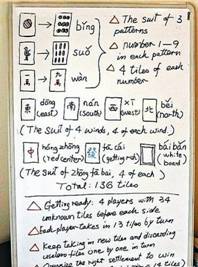 bǐng
The suit of 3 patterns
suǒ
number 1-9 in each pattern
一萬 → 九萬 wàn
4 tiles of each number
東 南 西 北
dōng (east) nán (south) xī (west) běi (north)
(The Suit of 4 winds, 4 of each wind)
中 hóng zhōng (red center) fā cái (getting rich) bái bǎn (white board)
(The Suit of zhōng fā bái, 4 of each)
Total: 136 tiles
Getting ready: 4 players with 34
unknown tiles before each side
Each player takes in 13 tiles by turn
Keep taking in new tiles and discarding
useless tiles one by one in turn
the right settlement to win